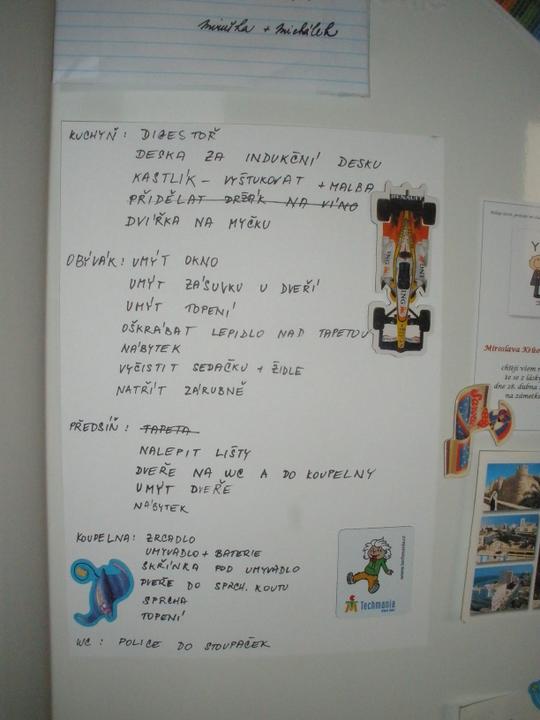 miruška + michálek
KUCHYŇ: DIGESTOŘ
DESKA ZA INDUKČNÍ DESKU
KASTLÍK – VYŠTUKOVAT + MALBA
PŘIDĚLAT DRŽÁK NA VÍNO
DVÍŘKA NA MYČKU
OBÝVÁK: UMÝT OKNO
UMÝT ZÁSUVKU U DVEŘÍ
UMÝT TOPENÍ
OŠKRÁBAT LEPIDLO NAD TAPETOU
NÁBYTEK
VYČISTIT SEDAČKU + ŽIDLE
NATŘÍT ZÁRUBNĚ
PŘEDSÍŇ: TAPETA
NALEPIT LIŠTY
DVEŘE NA WC A DO KOUPELNY
UMÝT DVEŘE
NÁBYTEK
KOUPELNA: ZRCADLO
UMYVADLO + BATERIE
SKŘÍŇKA POD UMYVADLO
DVEŘE DO SPRCH. KOUTU
SPRCHA
TOPENÍ
WC: POLICE DO STOUPAČEK
RENAULT
ING
ING
Techmania
Miroslava
chtějí všem
že se z lásky
dne 28. dubna
na zámetk